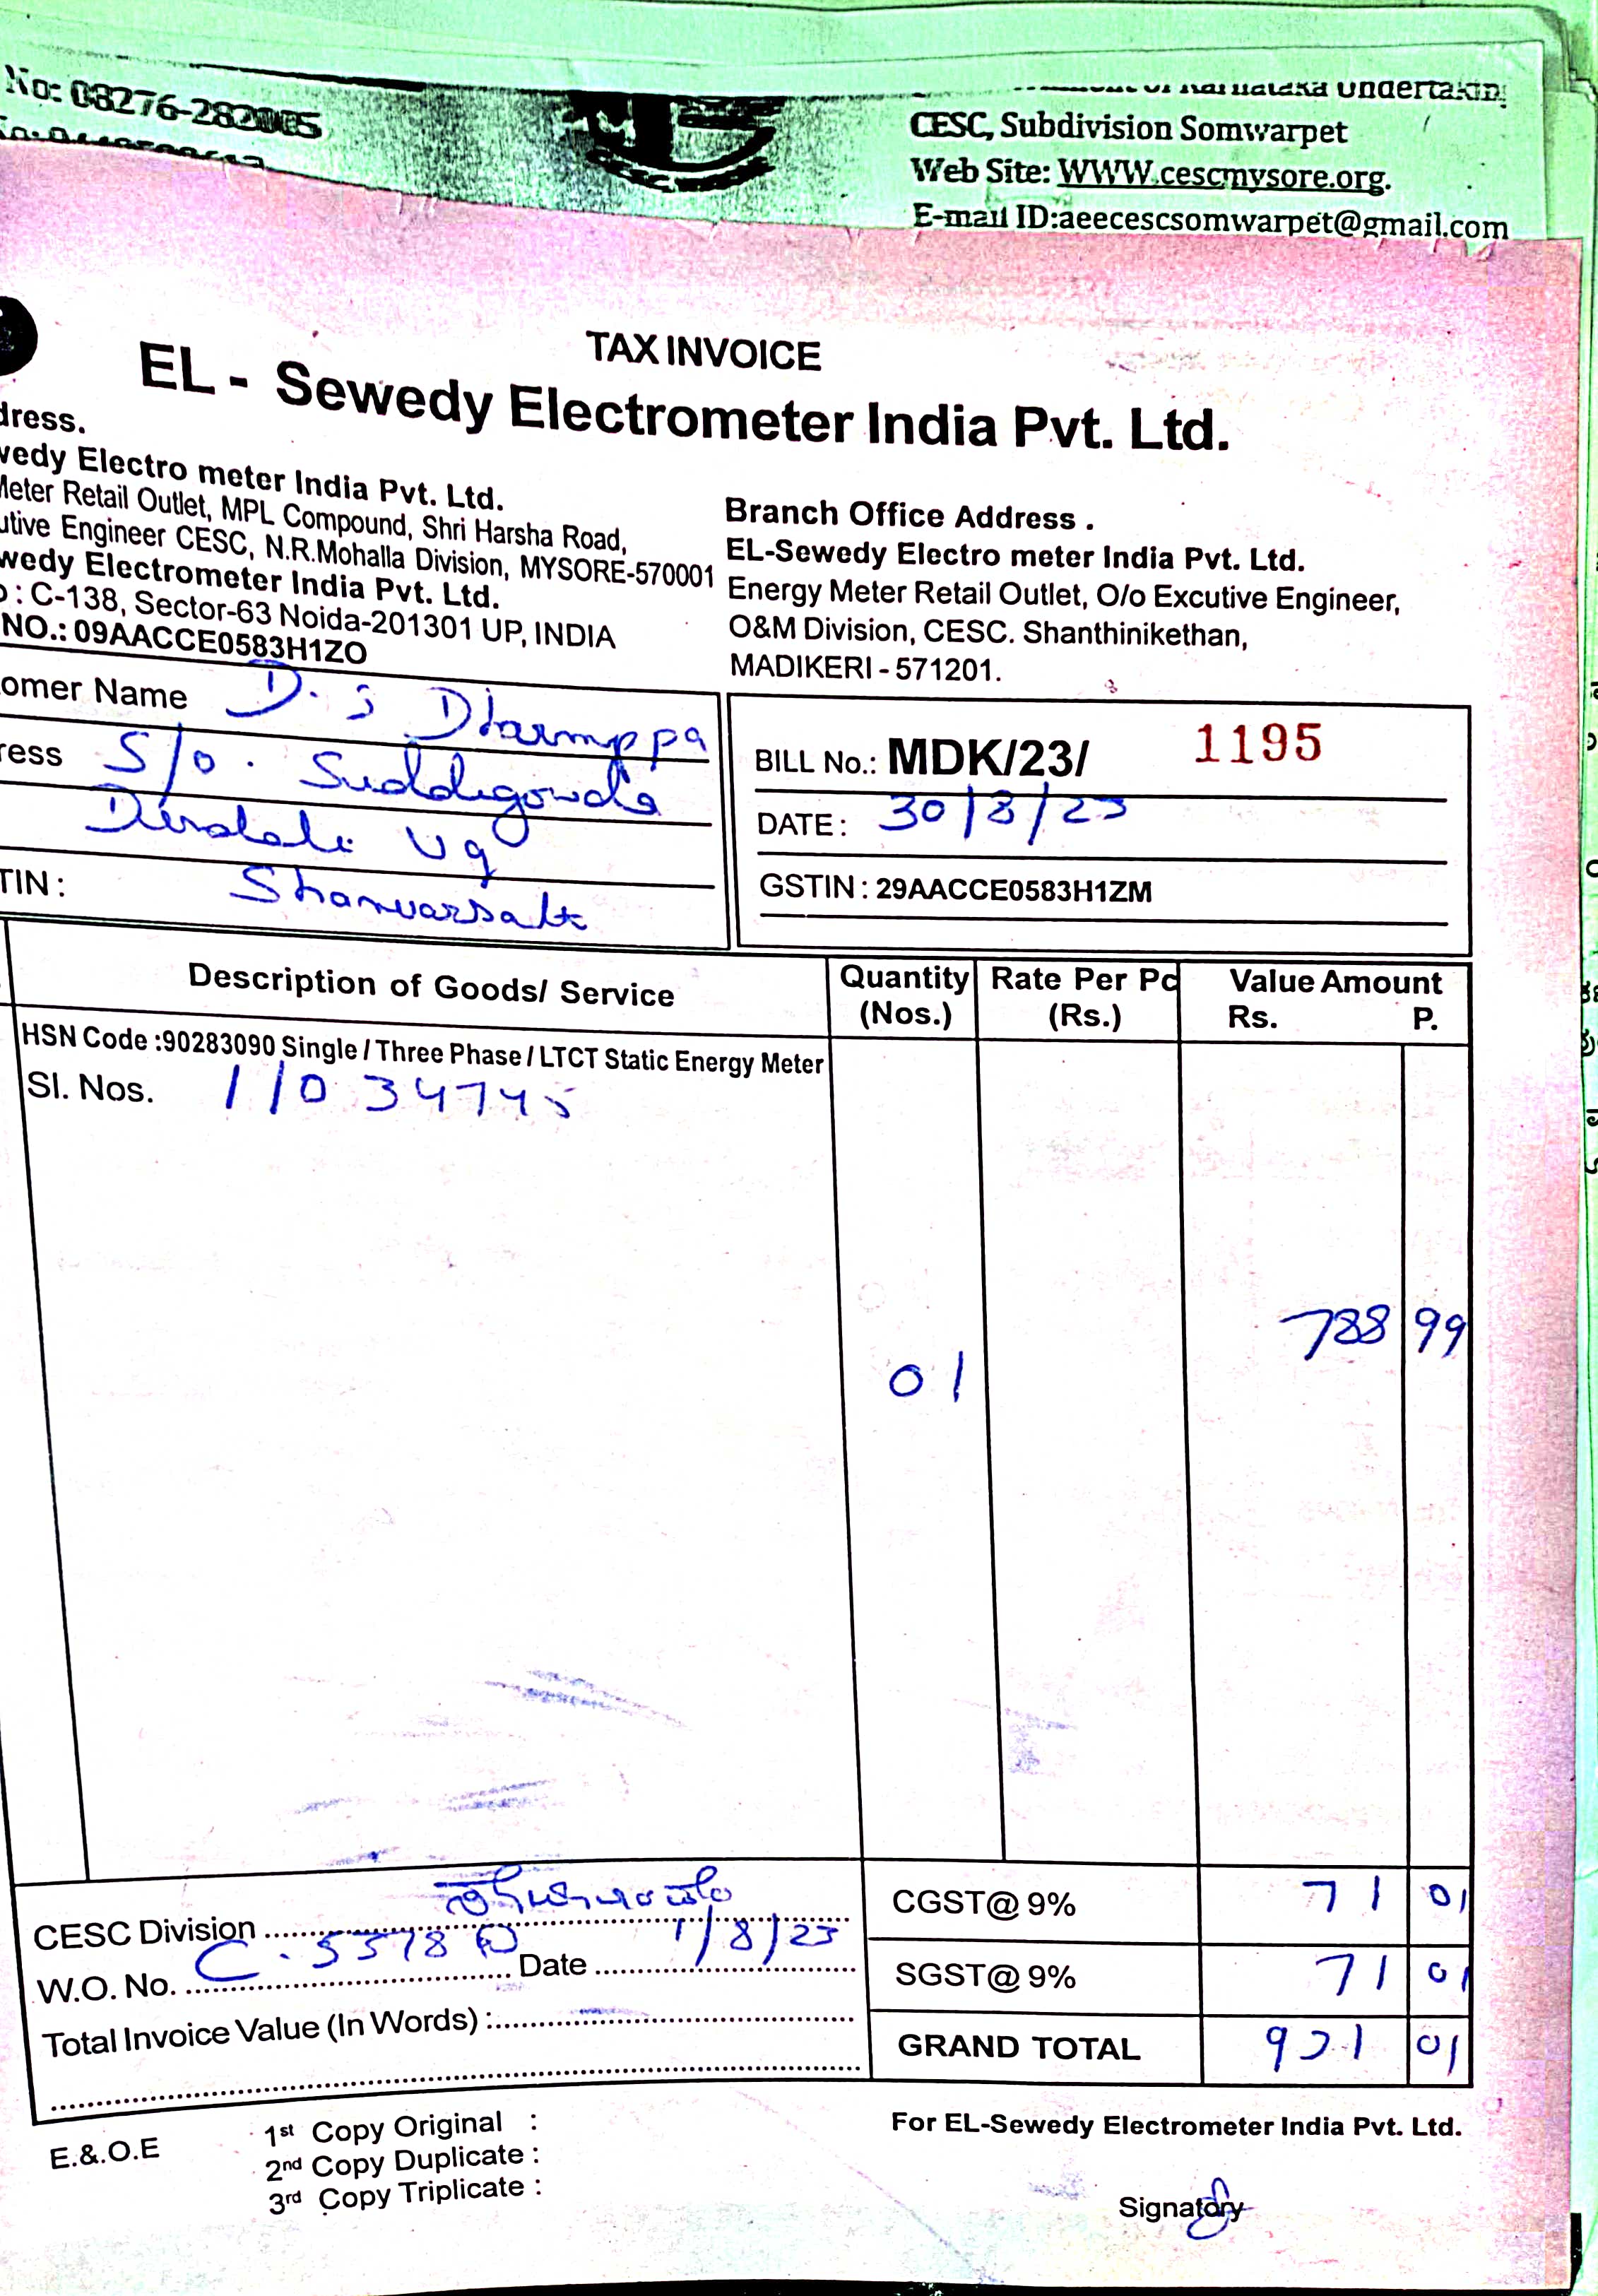 No: 08276-282005
CESC, Subdivision Somwarpet
Web Site: WWW.cescmysore.org.
E-mail ID:aeecescsomwarpet@gmail.com
TAX INVOICE
EL - Sewedy Electrometer India Pvt. Ltd.
dress.
wedy Electro meter India Pvt. Ltd.
Meter Retail Outlet, MPL Compound, Shri Harsha Road,
utive Engineer CESC, N.R.Mohalla Division, MYSORE-570001
wedy Electrometer India Pvt. Ltd.
: C-138, Sector-63 Noida-201301 UP, INDIA
NO.: 09AACCE0583H1ZO
Branch Office Address .
EL-Sewedy Electro meter India Pvt. Ltd.
Energy Meter Retail Outlet, O/o Excutive Engineer,
O&M Division, CESC. Shanthinikethan,
MADIKERI - 571201.
omer Name D. S
ress S/o.
TIN :
BILL No.: MDK/23/ 1195
DATE : 30/8/23
GSTIN : 29AACCE0583H1ZM
Description of Goods/ Service
Quantity (Nos.)
Rate Per Pc (Rs.)
Value Amount
Rs. P.
HSN Code :90283090 Single / Three Phase / LTCT Static Energy Meter
Sl. Nos. 11034745
01
788 99
CESC Division
W.O. No. Date 1/8/23
Total Invoice Value (In Words) :
CGST@ 9% 71 01
SGST@ 9% 71 01
GRAND TOTAL 931 01
E.&.O.E
1st Copy Original :
2nd Copy Duplicate :
3rd Copy Triplicate :
For EL-Sewedy Electrometer India Pvt. Ltd.
Signatory